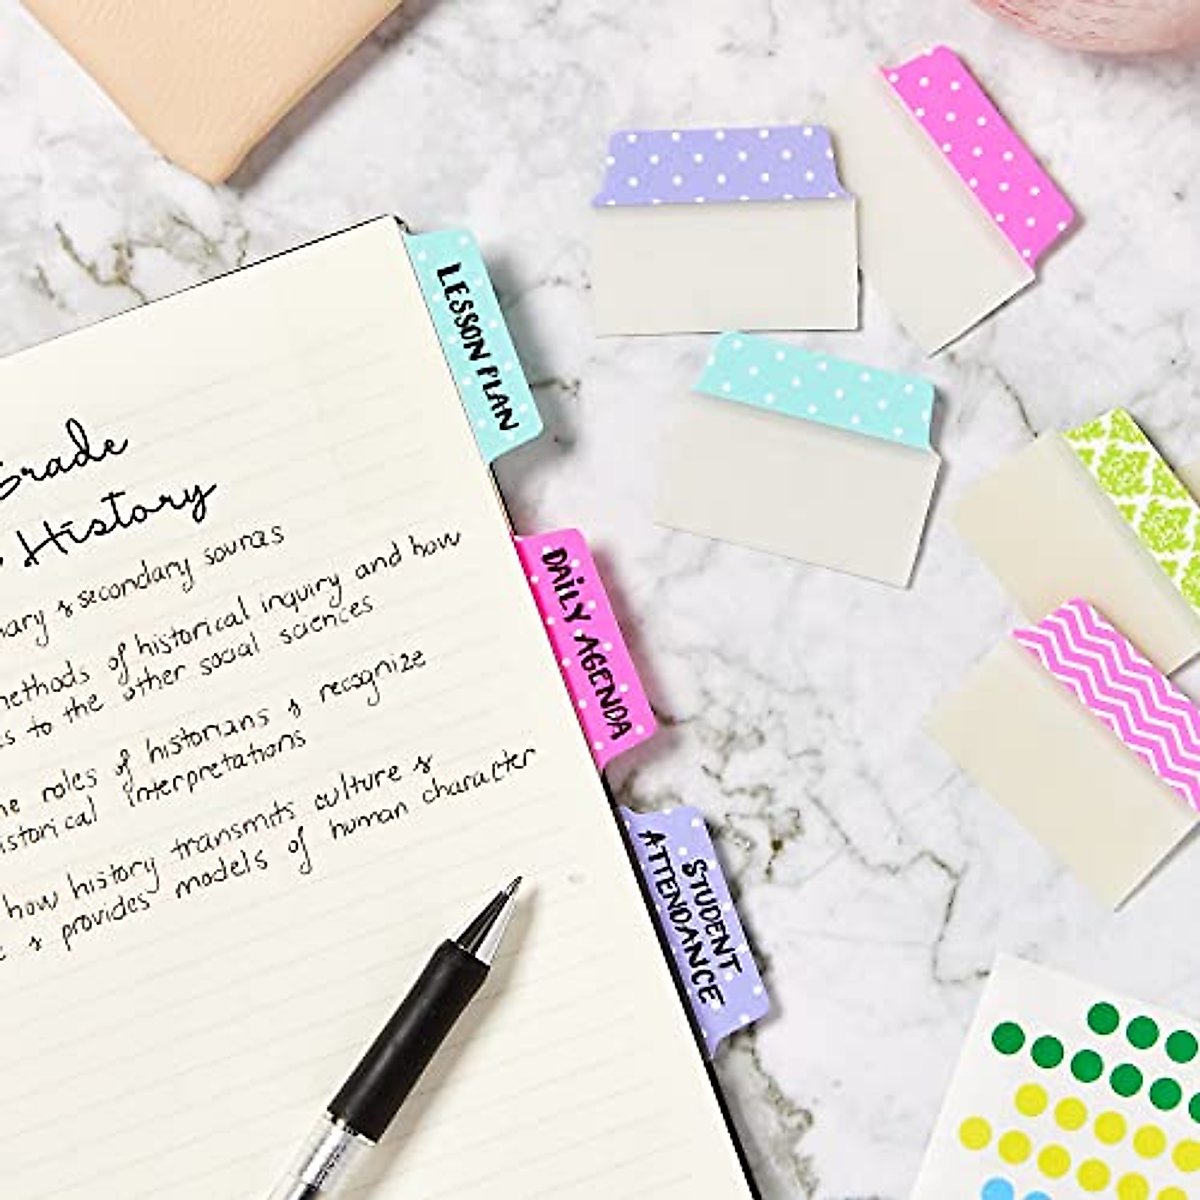 Grade
History
secondary sources
methods of historical inquiry and how
to the other social sciences
roles of historians & recognize
historical interpretations
how history transmits culture &
& provides models of human character
LESSON PLAN
DAiLY AGENDA
STUDENT
ATTENDANCE